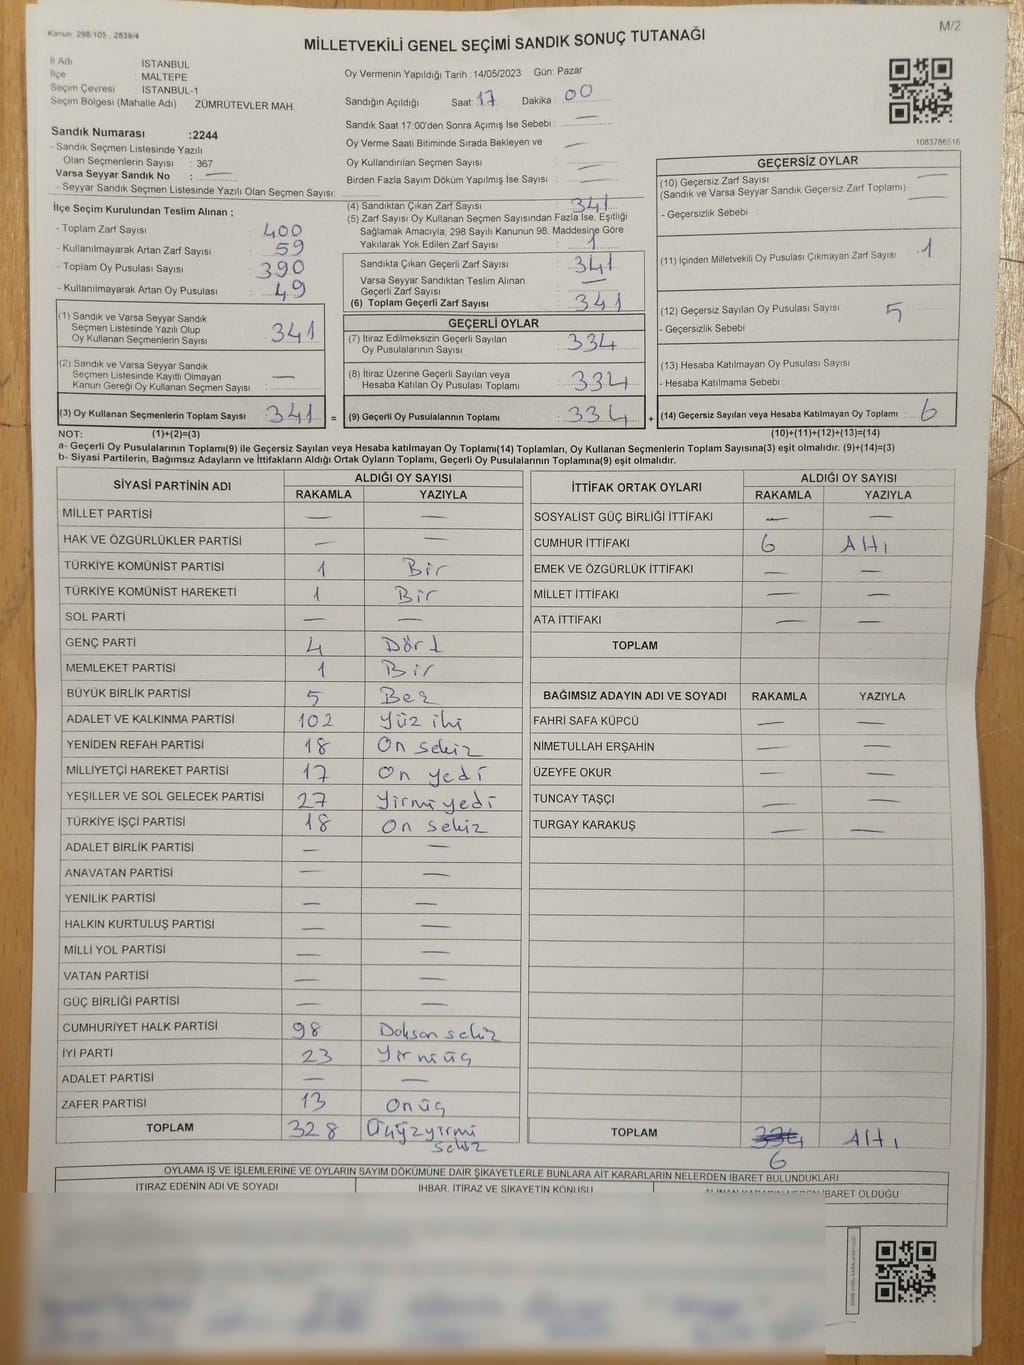 Kanun 298/105, 2839/4
M/2
MİLLETVEKİLİ GENEL SEÇİMİ SANDIK SONUÇ TUTANAĞI
İl Adı İSTANBUL
İlçe MALTEPE
Seçim Çevresi : İSTANBUL-1
Seçim Bölgesi (Mahalle Adı) : ZÜMRÜTEVLER MAH.
Sandık Numarası :2244
- Sandık Seçmen Listesinde Yazılı
Olan Seçmenlerin Sayısı : 367
Varsa Seyyar Sandık No : —
- Seyyar Sandık Seçmen Listesinde Yazılı Olan Seçmen Sayısı:
Oy Vermenin Yapıldığı Tarih :14/05/2023 Gün: Pazar
Sandığın Açıldığı Saat: 17 Dakika : 00
Sandık Saat 17:00'den Sonra Açımış İse Sebebi : —
Oy Verme Saati Bitiminde Sırada Bekleyen ve —
Oy Kullandırılan Seçmen Sayısı : —
Birden Fazla Sayım Döküm Yapılmış İse Sayısı : —
1083786516
İlçe Seçim Kurulundan Teslim Alınan ;
- Toplam Zarf Sayısı : 400
- Kullanılmayarak Artan Zarf Sayısı : 59
- Toplam Oy Pusulası Sayısı : 390
- Kullanılmayarak Artan Oy Pusulası : 49
(1) Sandık ve Varsa Seyyar Sandık
Seçmen Listesinde Yazılı Olup
Oy Kullanan Seçmenlerin Sayısı : 341
(2) Sandık ve Varsa Seyyar Sandık
Seçmen Listesinde Kayıtlı Olmayan
Kanun Gereği Oy Kullanan Seçmen Sayısı : —
(3) Oy Kullanan Seçmenlerin Toplam Sayısı : 341 =
(4) Sandıktan Çıkan Zarf Sayısı : 341
(5) Zarf Sayısı Oy Kullanan Seçmen Sayısından Fazla İse, Eşitliği
Sağlamak Amacıyla, 298 Sayılı Kanunun 98. Maddesine Göre
Yakılarak Yok Edilen Zarf Sayısı : 1
Sandıkta Çıkan Geçerli Zarf Sayısı : 341
Varsa Seyyar Sandıktan Teslim Alınan
Geçerli Zarf Sayısı : —
(6) Toplam Geçerli Zarf Sayısı : 341
GEÇERLİ OYLAR
(7) İtiraz Edilmeksizin Geçerli Sayılan
Oy Pusulalarının Sayısı : 334
(8) İtiraz Üzerine Geçerli Sayılan veya
Hesaba Katılan Oy Pusulası Toplamı : 334
(9) Geçerli Oy Pusulalarının Toplamı : 334 +
GEÇERSİZ OYLAR
(10) Geçersiz Zarf Sayısı —
(Sandık ve Varsa Seyyar Sandık Geçersiz Zarf Toplamı)
- Geçersizlik Sebebi : —
(11) İçinden Milletvekili Oy Pusulası Çıkmayan Zarf Sayısı : 1
(12) Geçersiz Sayılan Oy Pusulası Sayısı : 5
- Geçersizlik Sebebi :
(13) Hesaba Katılmayan Oy Pusulası Sayısı
- Hesaba Katılmama Sebebi :
(14) Geçersiz Sayılan veya Hesaba Katılmayan Oy Toplamı : 6
NOT: (1)+(2)=(3) (10)+(11)+(12)+(13)=(14)
a- Geçerli Oy Pusulalarının Toplamı(9) ile Geçersiz Sayılan veya Hesaba katılmayan Oy Toplamı(14) Toplamları, Oy Kullanan Seçmenlerin Toplam Sayısına(3) eşit olmalıdır. (9)+(14)=(3)
b- Siyasi Partilerin, Bağımsız Adayların ve İttifakların Aldığı Ortak Oyların Toplamı, Geçerli Oy Pusulalarının Toplamına(9) eşit olmalıdır.
SİYASİ PARTİNİN ADI ALDIĞI OY SAYISI
RAKAMLA YAZIYLA
MİLLET PARTİSİ — —
HAK VE ÖZGÜRLÜKLER PARTİSİ — —
TÜRKİYE KOMÜNİST PARTİSİ 1 Bir
TÜRKİYE KOMÜNİST HAREKETİ 1 Bir
SOL PARTİ — —
GENÇ PARTİ 4 Dört
MEMLEKET PARTİSİ 1 Bir
BÜYÜK BİRLİK PARTİSİ 5 Beş
ADALET VE KALKINMA PARTİSİ 102 Yüz iki
YENİDEN REFAH PARTİSİ 18 On sekiz
MİLLİYETÇİ HAREKET PARTİSİ 17 On yedi
YEŞİLLER VE SOL GELECEK PARTİSİ 27 Yirmi yedi
TÜRKİYE İŞÇİ PARTİSİ 18 On sekiz
ADALET BİRLİK PARTİSİ — —
ANAVATAN PARTİSİ — —
YENİLİK PARTİSİ — —
HALKIN KURTULUŞ PARTİSİ — —
MİLLİ YOL PARTİSİ — —
VATAN PARTİSİ — —
GÜÇ BİRLİĞİ PARTİSİ — —
CUMHURİYET HALK PARTİSİ 98 Doksan sekiz
İYİ PARTİ 23 Yirmiüç
ADALET PARTİSİ — —
ZAFER PARTİSİ 13 Onüç
TOPLAM 328 Üçyüzyirmi
sekiz
İTTİFAK ORTAK OYLARI ALDIĞI OY SAYISI
RAKAMLA YAZIYLA
SOSYALİST GÜÇ BİRLİĞİ İTTİFAKI — —
CUMHUR İTTİFAKI 6 Altı
EMEK VE ÖZGÜRLÜK İTTİFAKI — —
MİLLET İTTİFAKI — —
ATA İTTİFAKI — —
TOPLAM
BAĞIMSIZ ADAYIN ADI VE SOYADI RAKAMLA YAZIYLA
FAHRİ SAFA KÜPCÜ — —
NİMETULLAH ERŞAHİN — —
ÜZEYFE OKUR — —
TUNCAY TAŞÇI — —
TURGAY KARAKUŞ — —
TOPLAM 334 Altı
6
OYLAMA İŞ VE İŞLEMLERİNE VE OYLARIN SAYIM DÖKÜMÜNE DAİR ŞİKAYETLERLE BUNLARA AİT KARARLARIN NELERDEN İBARET BULUNDUKLARI
İTİRAZ EDENİN ADI VE SOYADI İHBAR, İTİRAZ VE ŞİKAYETİN KONUSU İBARET OLDUĞU